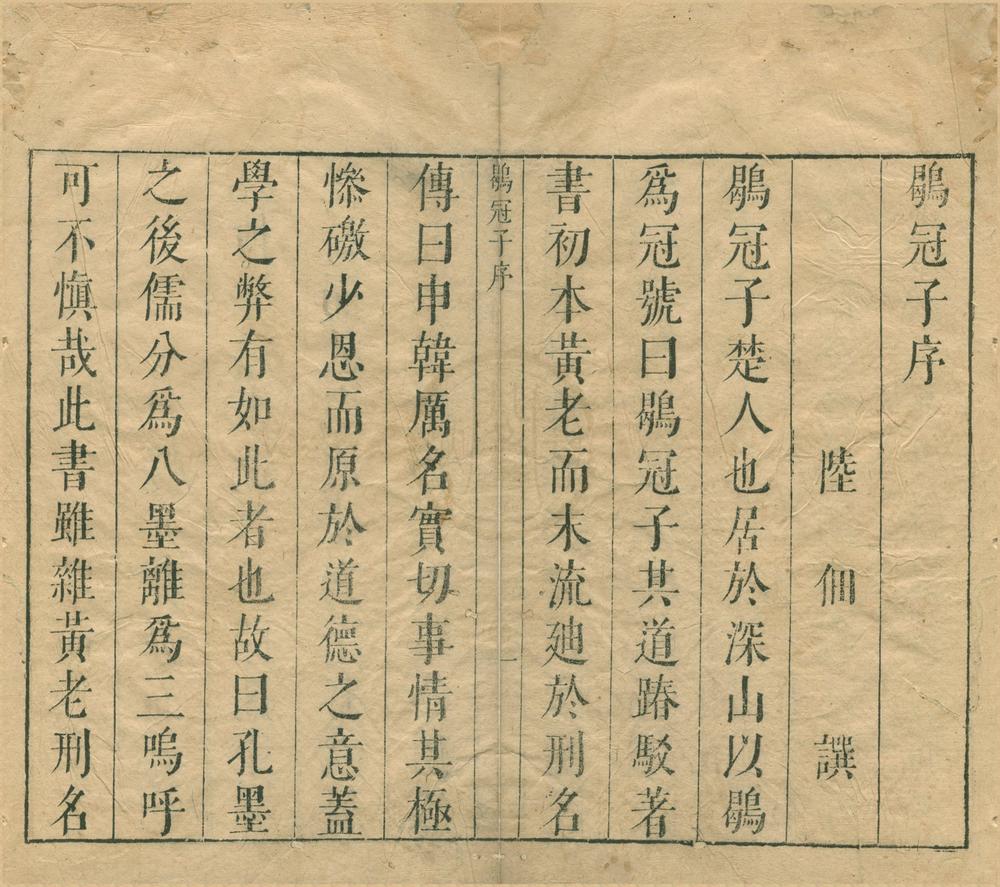 鶡冠子序
陸佃譔
鶡冠子楚人也居於深山以鶡
爲冠號曰鶡冠子其道踳駁著
書初本黃老而末流廸於刑名
鶡冠子序 一
傳曰申韓厲名實切事情其極
慘礉少恩而原於道德之意蓋
學之弊有如此者也故曰孔墨
之後儒分爲八墨離爲三嗚呼
可不愼哉此書雖雜黃老刑名